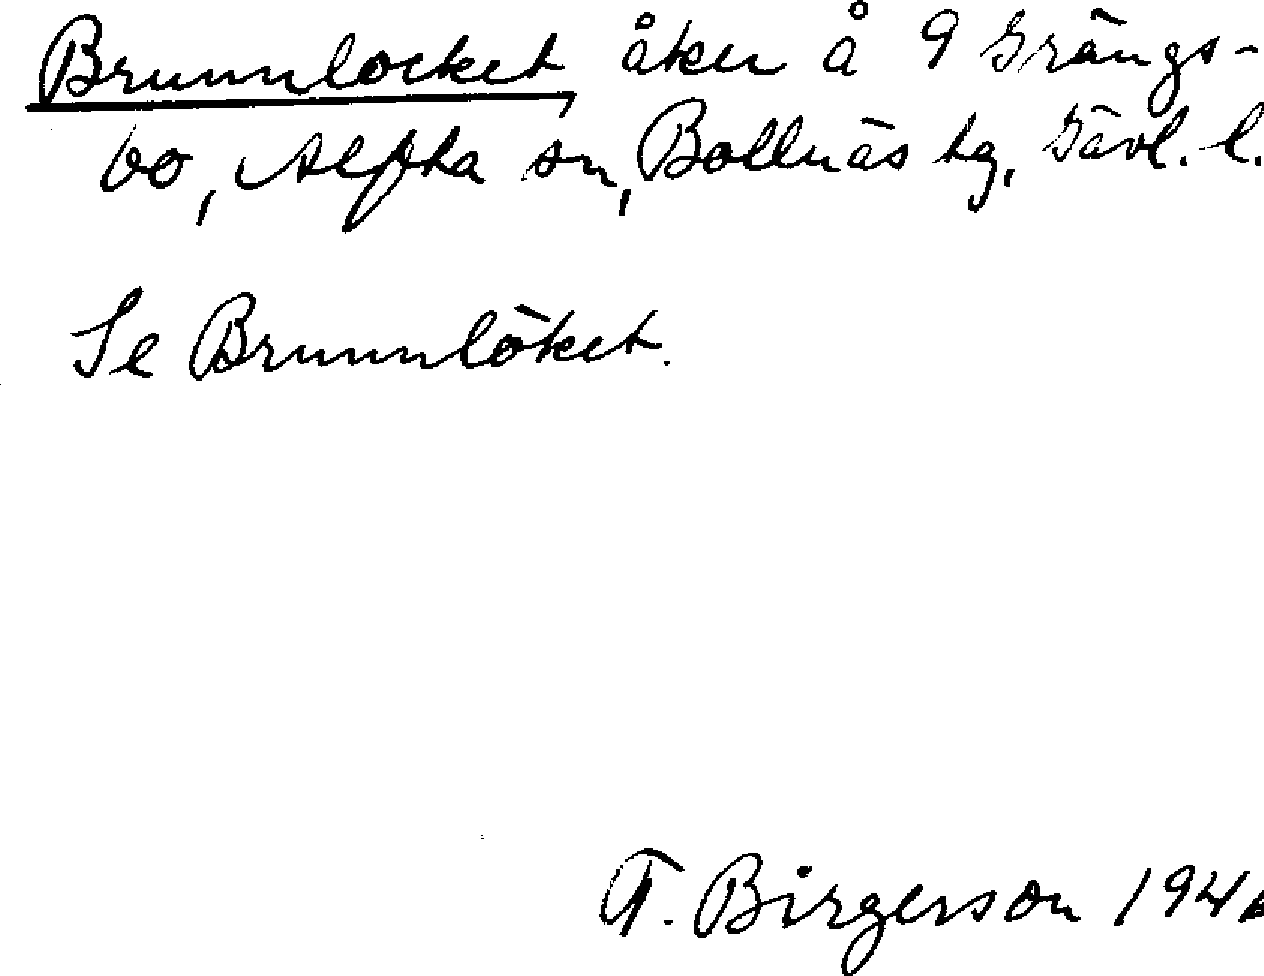 Brunnlocket, åker å 9 Gräng­s-
bo, Alfta sn, Bollnäs tg, Gävl. l.
Se Brunnlöket.
T. Birgerson